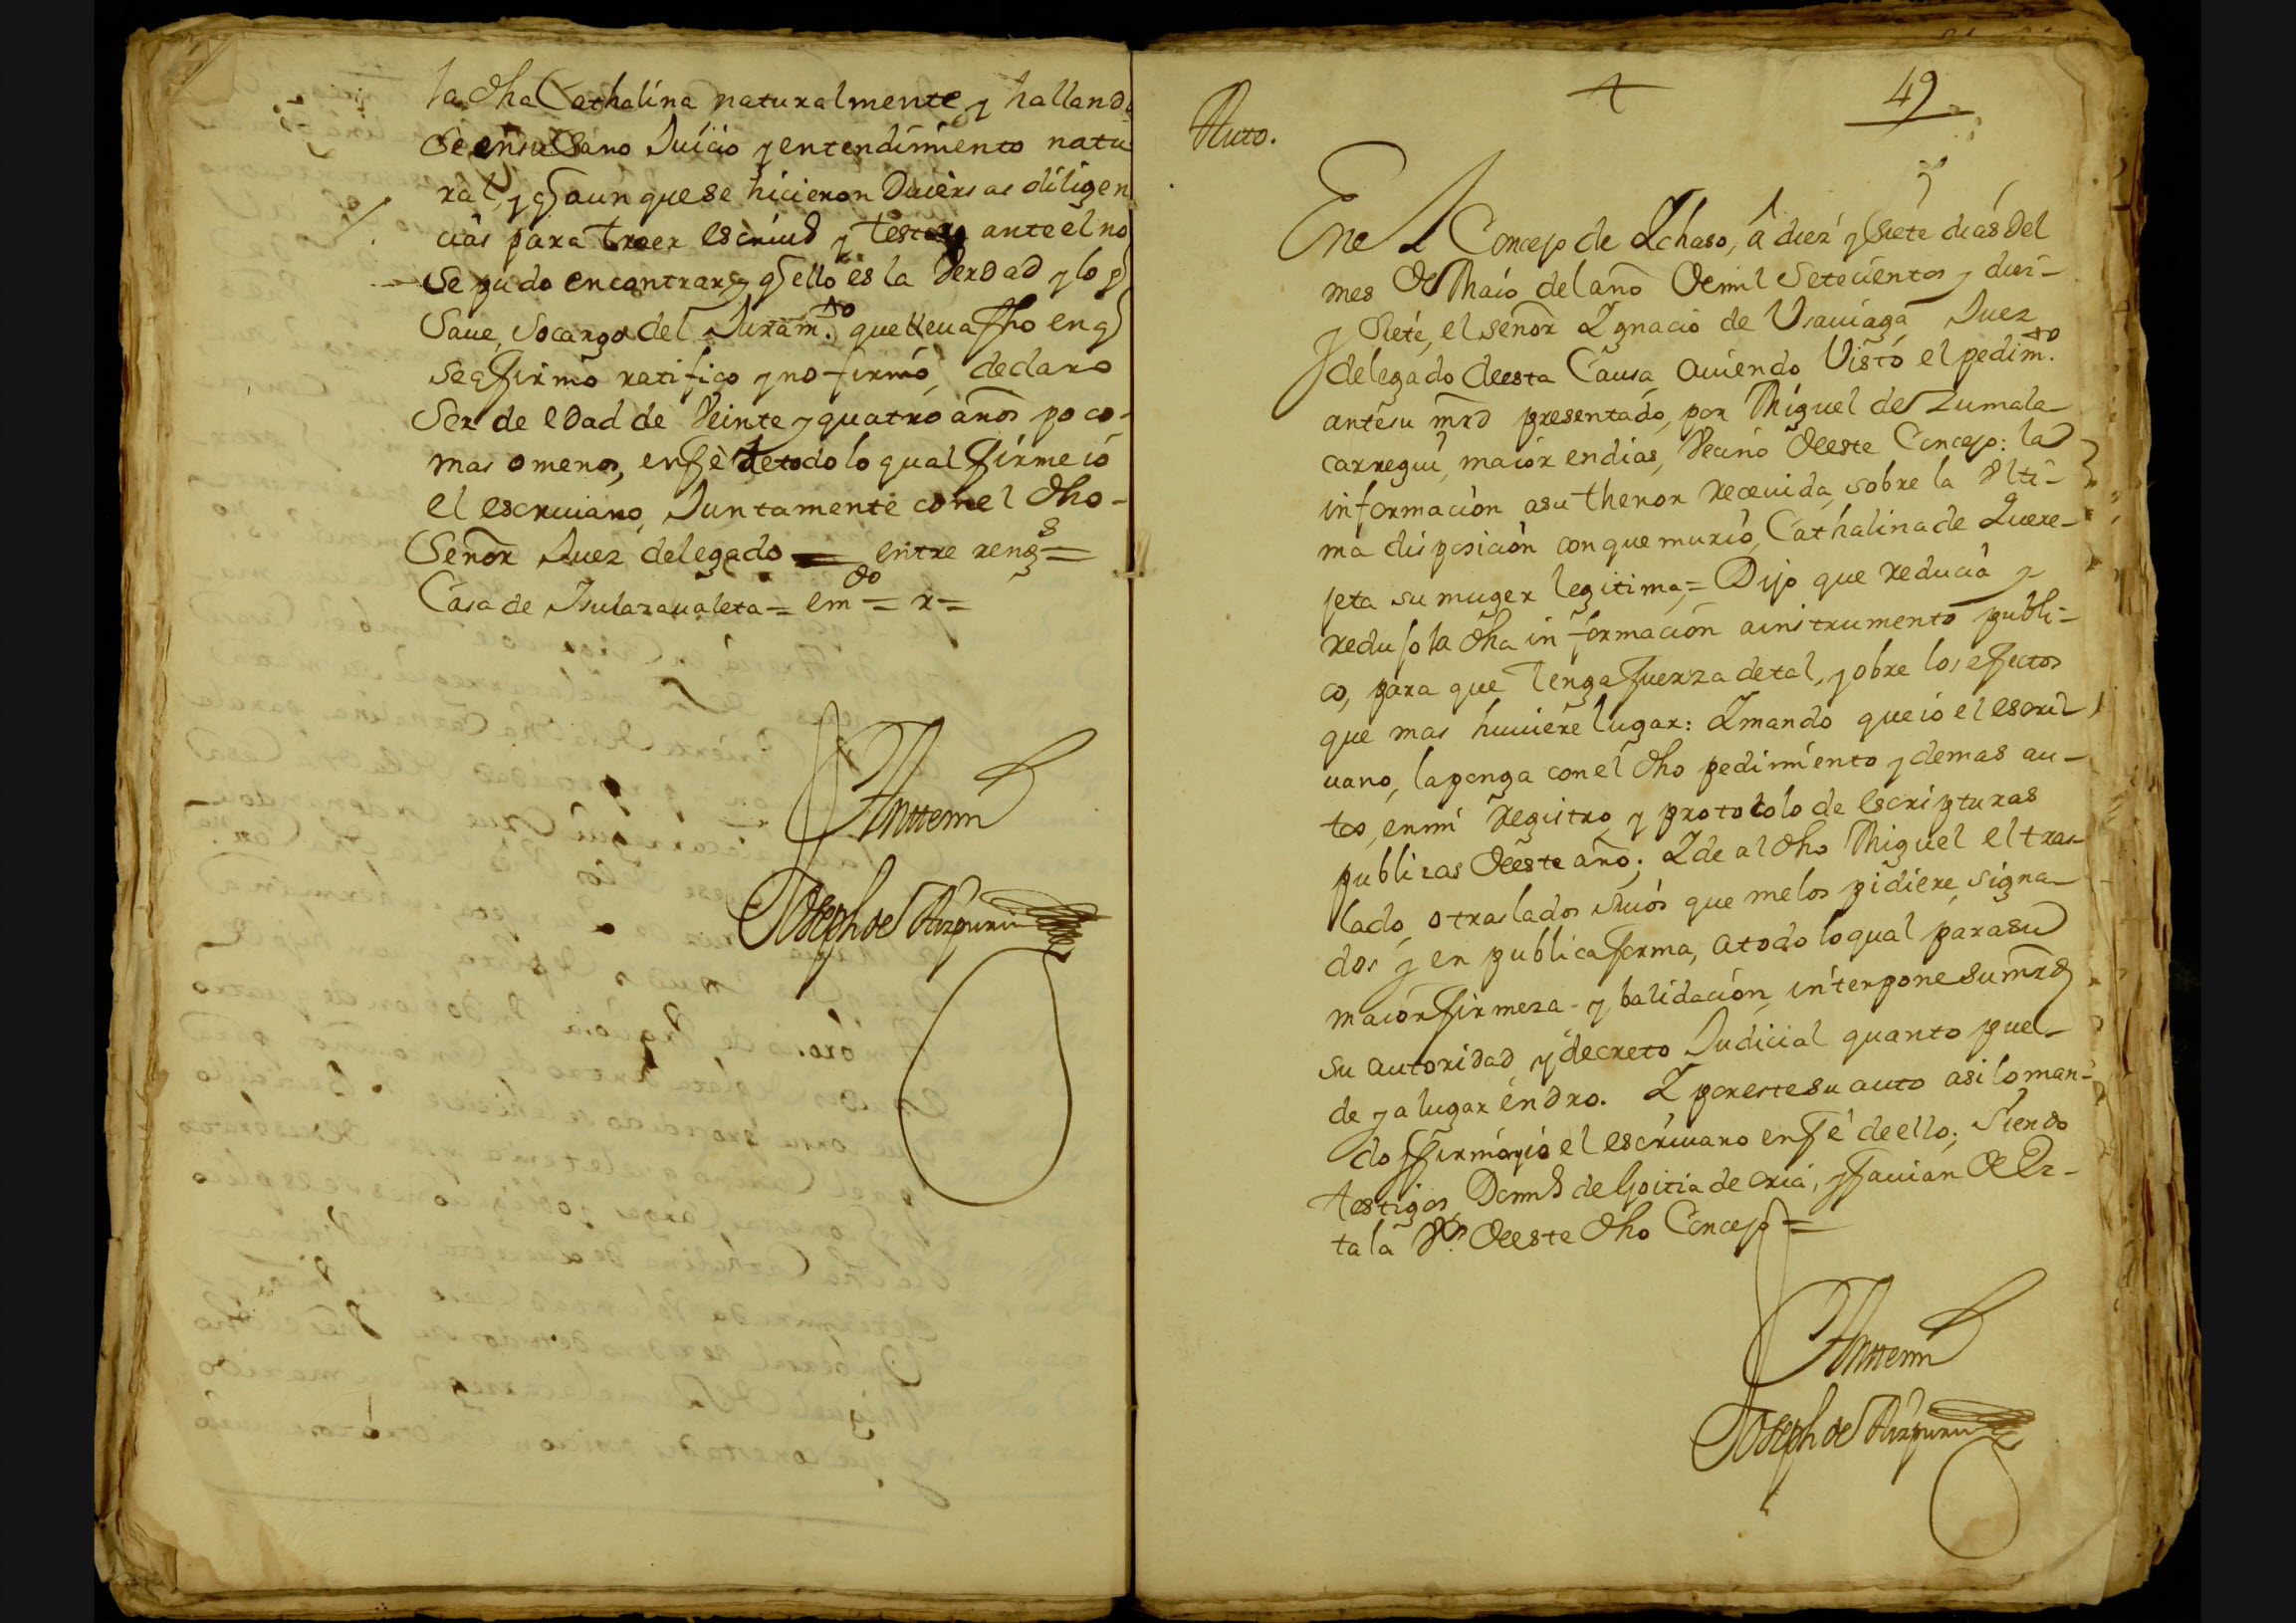 la dha Cathalina naturalmente, y halland
se en su Sano Juicio y entendimiento natu
ral, y q aunquese hicieron Diuersas diligen
cias para traer escriu٥ y testar ante el no
se pudo encontrar, y q ello es la Verdad y lo q
Saue, Socargo del Juram.to que lleua fho en q
se afirmo ratifico y no firmó, declaro
Ser de edad de Veinte y quatro años poco-
mas o menos, en fè de todo lo qual firme io
el escriuano, Juntamente con el dho-
Señor Juez delegado = entre reng.s =
Casa de = em.do = r =
Antterm
Joseph de Aizpuru
49
Auto.
En el Concejo de Ychaso, â diez y Siete dias del
mes de Maio del año de mil Setecientos y diez-
y Siete, el señor Ygnacio de Vsauiaga Juez
delegado deesta Causa auiendo Visto el pedim.to
antesu mrd presentado, por Miguel de Zumala-
carregui, maior endias, Vecino deeste Concejo: la
información asu thenor receuida, sobre la Vlti-
ma disposición con que murió, Cathalina de Quere-
jeta su muger legitima,= Dijo que reducia y
redujo la dha información ainstrumento publi-
co, para que tenga fuerza de tal, y obre los efectos
que mas huuiere lugar: Y mando que io el escri-
uano, la ponga con el dho pedimiento y demas au-
tos, en mi Registro y protocolo de escripturas
publicas deeste año; Y de al dho Miguel el tras-
lado, o traslados suios que me los pidiere, signa-
dos y en publica forma, atodo lo qual para su
maior firmeza- y balidación, interpone su mrd
su autoridad y decreto Judicial quanto pue-
de y a lugar en dro. Y por este su auto asi lo man-
do firmó yio el escriuano en fé de ello; Siendo
testigos Dom.o de Goitia de oria, y fauian de Yz-
tala V.os deeste dho Concejo =
Antterm
Joseph de Aizpuru